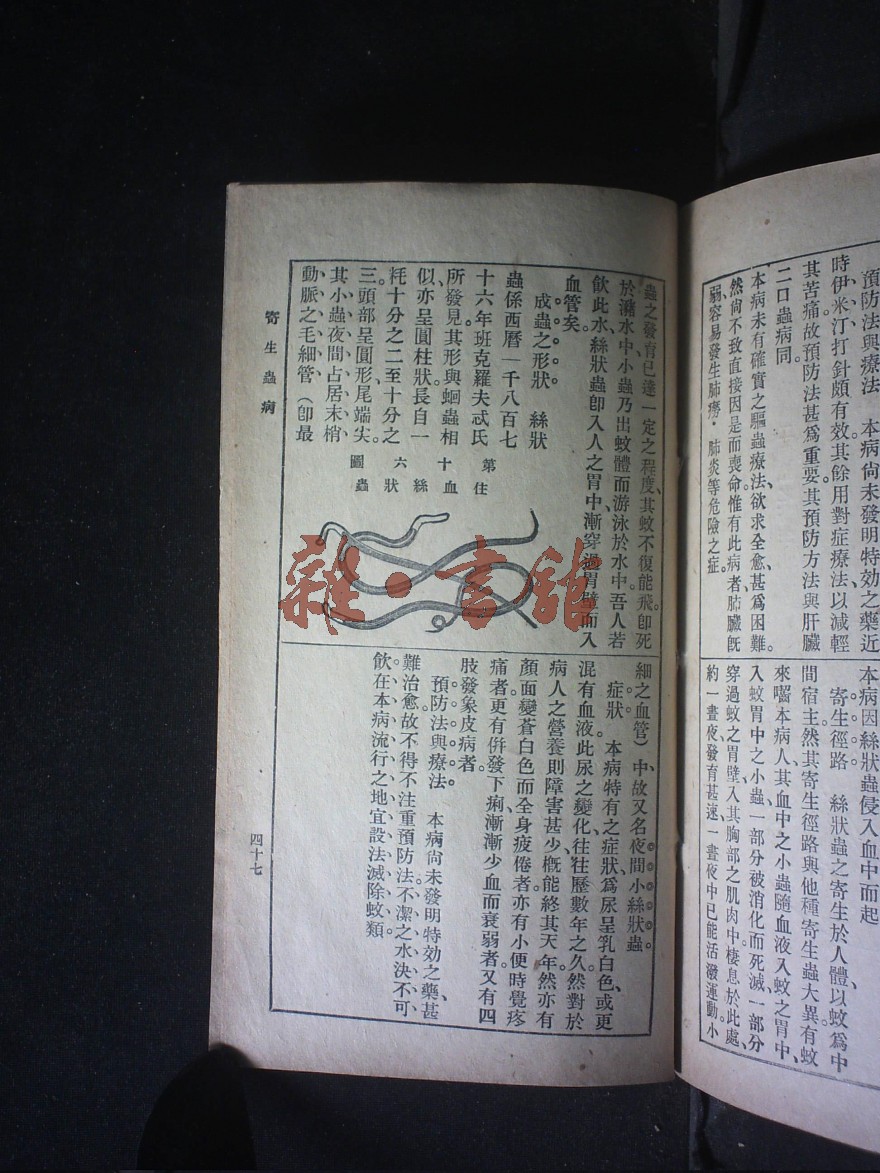 預防法與療法　本病尚未發明特効之藥近
時伊米汀打針頗有效其餘用對症療法以減輕
其苦痛故預防法甚爲重要其預防方法與肝臟
二口蟲病同。
本病未有確實之驅蟲療法、欲求全愈、甚爲困難。
然尚不致直接因是而喪命、惟有此病者、肺臟旣
弱、容易發生肺癆・肺炎等危險之症。
本病因絲狀蟲侵入血中而起
寄生徑路　絲狀蟲之寄生於人體、以蚊爲中
間宿主。然其寄生徑路與他種寄生蟲大異。有蚊
來囓本病人、其血中之小蟲、隨血液入蚊之胃中、
入蚊胃中之小蟲、一部分被消化而死滅、一部分
穿過蚊之胃壁、入其胸部之肌肉中、棲息於此處、
約一晝夜、發育甚速、一晝夜中已能活潑運動。小
蟲之發育已達一定之程度、其蚊不復能飛、卽死
於潴水中、小蟲乃出蚊體而游泳於水中。吾人若
飮此水、絲狀蟲卽入人之胃中、漸穿過胃壁、而入
血管矣。
成蟲之形狀　絲狀
蟲係西曆一千八百七
十六年班克羅夫忒氏
所發見、其形與蛔蟲相
似、亦呈圓柱狀、長自一
粍十分之二至十分之
三。頭部呈圓形、尾端尖。
其小蟲夜間占居末梢
動脈之毛細管（卽最
第十六圖
住血絲狀蟲
細之血管）中、故又名夜間小絲狀蟲。
症狀　本病特有之症狀、爲尿呈乳白色、或更
混有血液、此尿之變化、往往歷數年之久、然對於
病人之營養、則障害甚少、槪能終其天年、然亦有
顏面變蒼白色、而全身疲倦者、亦有小便時覺疼
痛者。更有併發下痢、漸漸少血而衰弱者。又有四
肢發象皮病者。
預防法與療法　本病尚未發明特効之藥、甚
難治愈、故不得不注重預防法。不潔之水、決不可
飮。在本病流行之地、宜設法滅除蚊類。
寄生蟲病
四十七
雜·言館